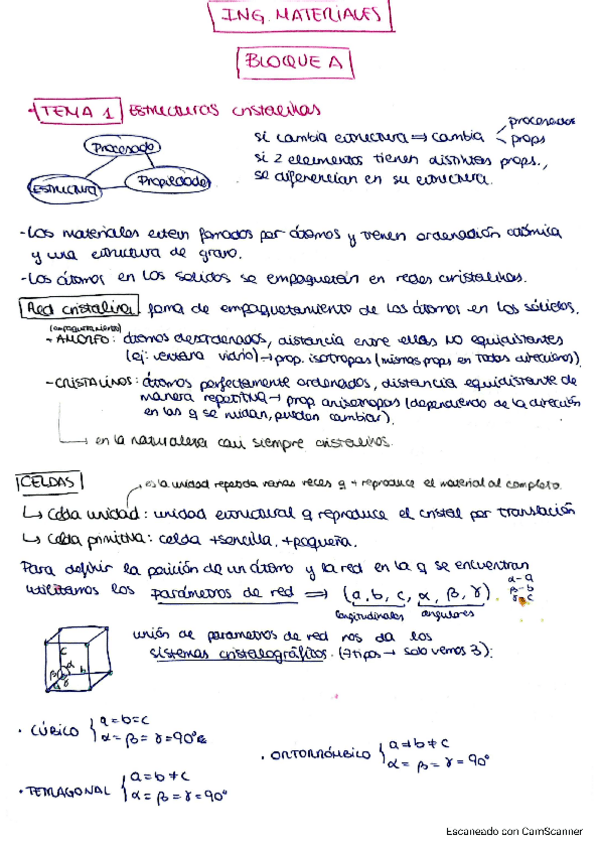 ING. MATERIALES
BLOQUE A
- TEMA 1 ESTRUCTURAS CRISTALINAS
Procesado
Estructura
Propiedades
si cambia estructura ⇒ cambia procesados
props
si 2 elementos tienen distintas props.,
se diferencian en su estructura.
- Los materiales están formados por átomos y tienen ordenación atómica
y una estructura de grano.
- Los átomos en los sólidos se empaquetan en redes cristalinas.
Red cristalina forma de empaquetamiento de los átomos en los sólidos.
(empaquetamiento)
- AMORFO: átomos desordenados, distancia entre ellos NO equidistantes
(ej: ventana vidrio) → prop. isotropas (mismas props en todas direcciones).
- CRISTALINOS: átomos perfectamente ordenados, distancia equidistante de
manera repetitiva → prop anisotropas (dependiendo de la dirección
en las q se midan, pueden cambiar).
→ en la naturaleza casi siempre cristalinos.
CELDAS → es la unidad repetida varias veces q + reproduce el material al completo.
↳ Celda unidad: unidad estructural q reproduce el cristal por translación
↳ Celda primitiva: celda +sencilla, +pequeña.
Para definir la posición de un átomo y la red en la q se encuentran
utilizamos los parámetros de red ⇒ (a, b, c, α, β, γ).
longitudinales angulares
α-a
β-b
γ-c
c
α
β
b
γ
a
unión de parametros de red nos da los
sistemas cristalográficos. (7 tipos → solo vemos 3):
· CÚBICO { a = b = c
α = β = γ = 90º
· ORTORRÓMBICO { a ≠ b ≠ c
α = β = γ = 90º
· TETRAGONAL { a = b ≠ c
α = β = γ = 90º
Escaneado con CamScanner